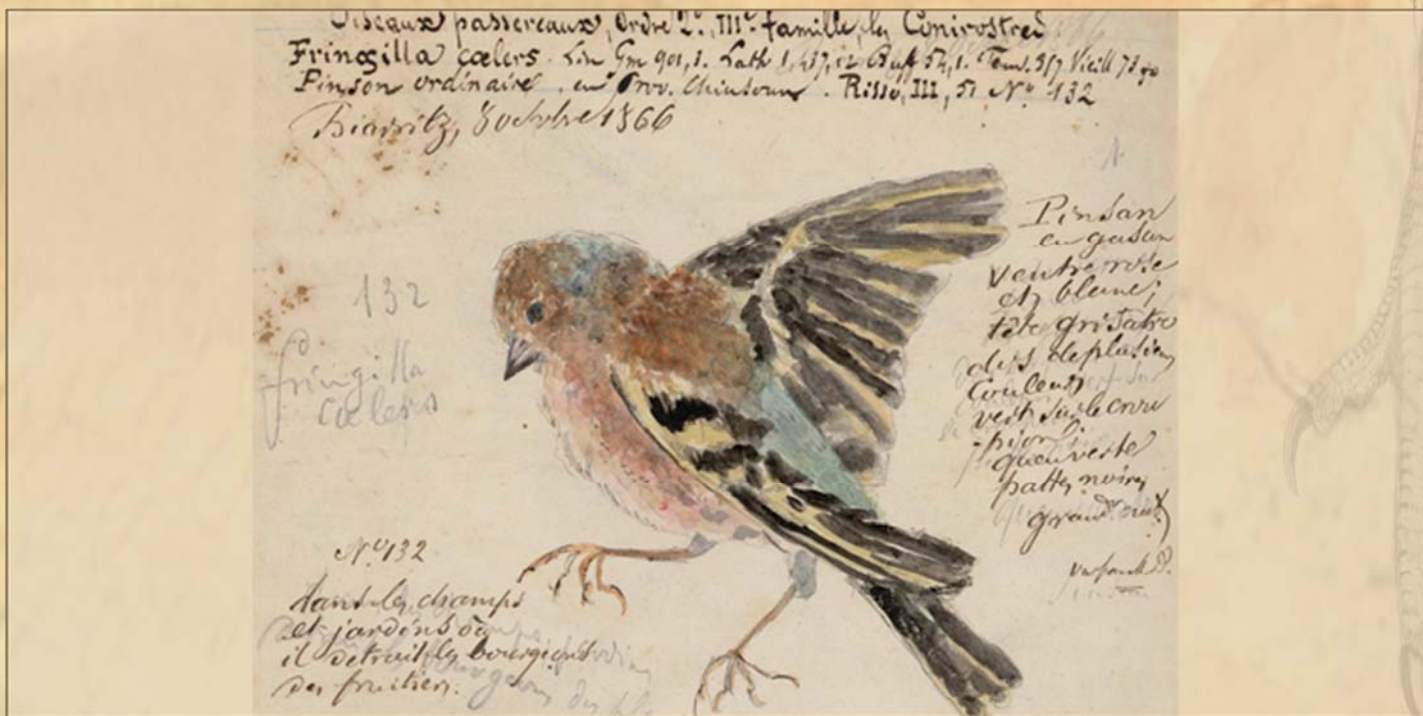 Oiseaux passereaux, Ordre 2e. IIIe. famille, les Conirostres
Fringilla cœlers. Lin Gm 901,1. Lath Buff 54,1. Tem. Vieill
Pinson ordinaire. en Prov. . Risso, III, 51 No. 132
Biarritz, 8 octobre 1866
1
132
fringilla
cœlers
Pinsan
en gascon
ventre rose
et blanc;
tête grisatre
dos de plusieurs
couleurs
vert sur le crou
pion;
queu verte
pattes noires
grand.
No. 132
dans les champs
et jardins où
il détruit les bourgeons
des fruitiers.